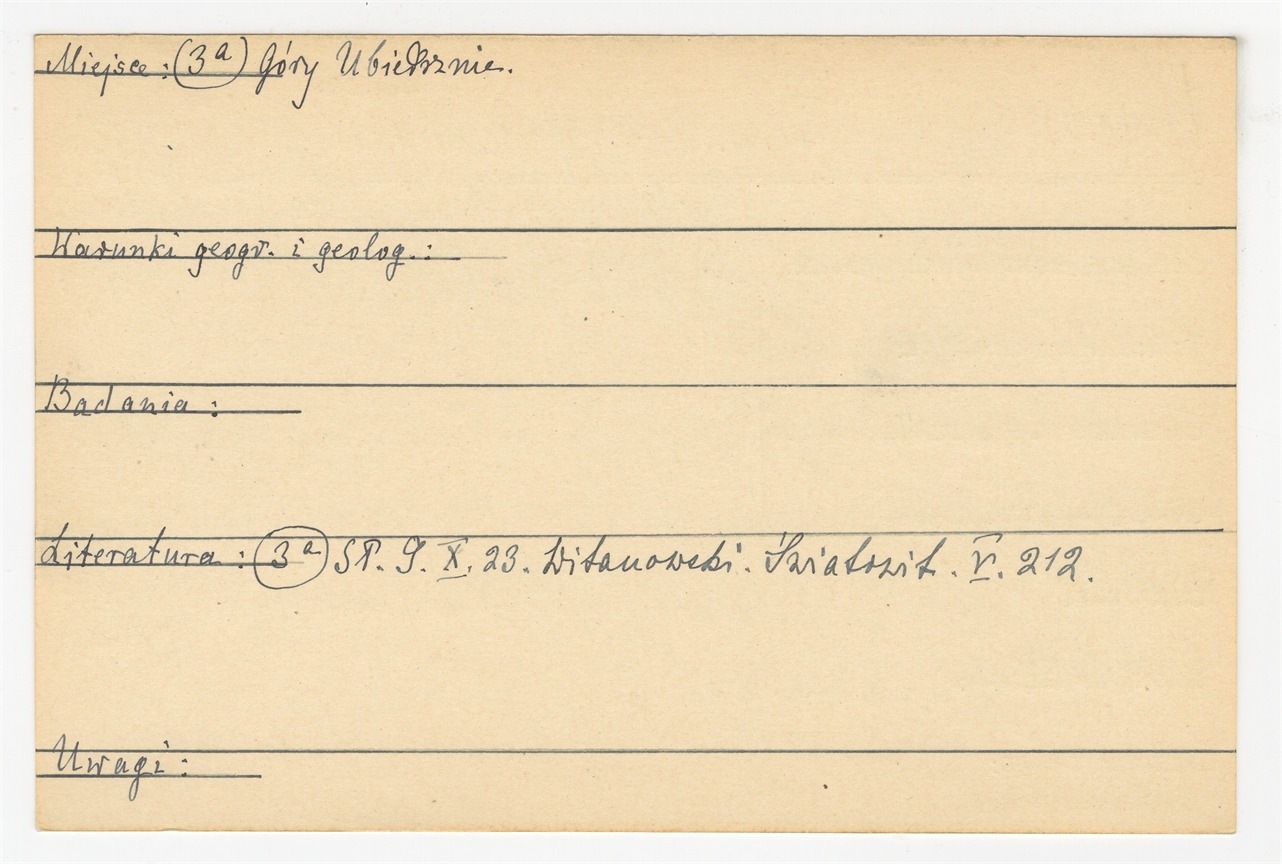 Miejsce : (3a) Góry Ubiedrznie.
Warunki geogr. i geolog. :
Badania :
Literatura : (3a) SP. G. X. 23. Witanowski. Światowit. V. 212.
Uwagi :